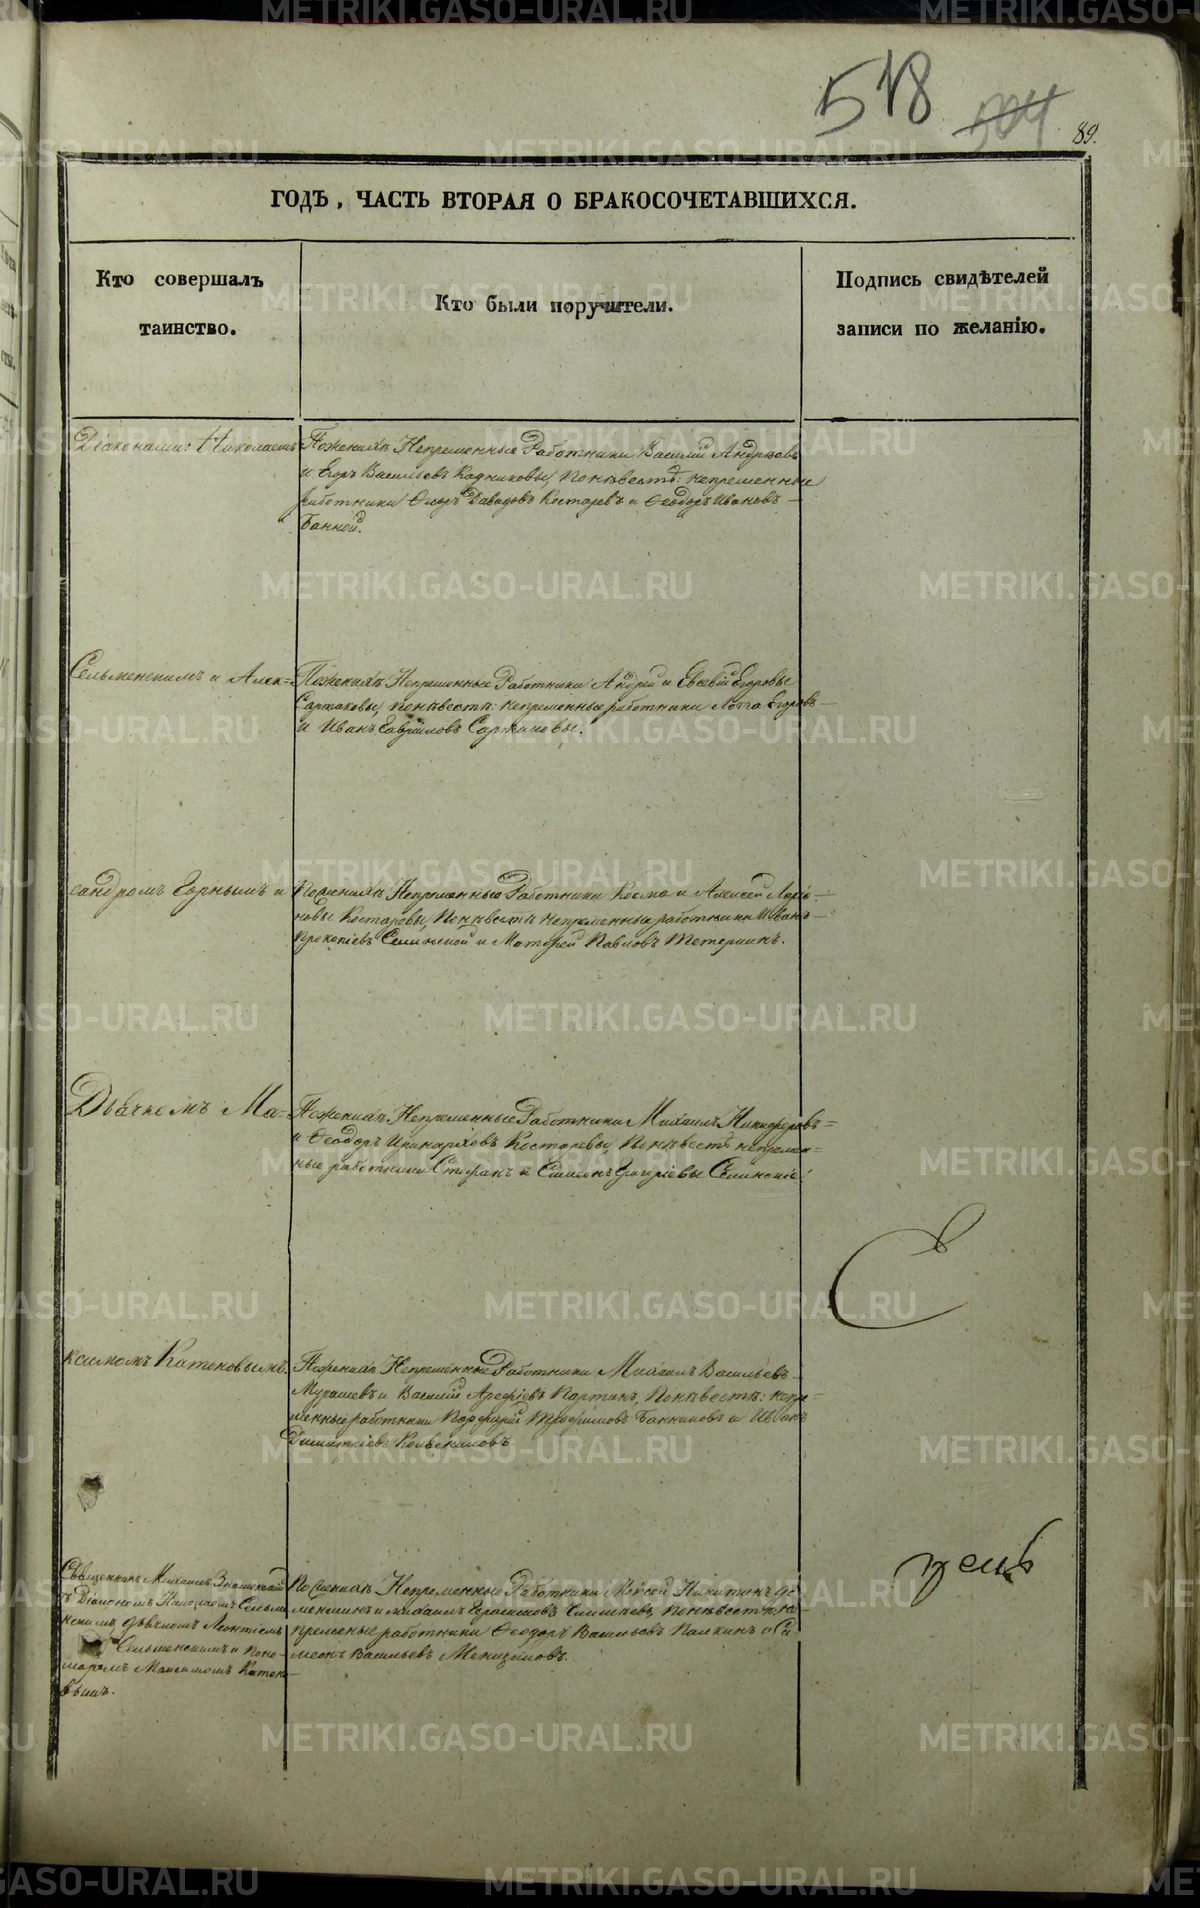 518 504 89.
ГОДЪ, ЧАСТЬ ВТОРАЯ О БРАКОСОЧЕТАВШИХСЯ.
Кто совершалъ
таинство.
Кто были поручители.
Подпись свидѣтелей
записи по желанію.
Діаконами: Николаемъ
По женихѣ Непременные Работники Василій Андреевъ
и Егоръ Васильевъ Кадниковы, По невестѣ: непременные
работники Егоръ Давыдовъ Костаревъ и Ѳеодоръ Ивановъ
Банной.
Сельменскимъ и Алек-
По женихѣ Непременные Работники Андрей и Евсевій Егоровы
Сартаковы, по невестѣ: непременные работники Логга Егоровъ
и Иванъ Гавриловъ Сартаковы.
сандромъ Горнымъ и
По женихѣ Непременные Работники Косма и Алексей
новы Костаревы, По невестѣ непременные работники Иванъ
Прокопіевъ Селинской и Матфей Павловъ Тетеринъ.
Дьячкемъ Ма-
По женихѣ Непременные Работники Михаилъ Никифоровъ
и Ѳеодоръ Иринарховъ Костаревы, По невестѣ непремен-
ные работники Стефанъ и Симеонъ Григоріевы Селинскіе.
ксимомъ Катоновымъ.
По женихѣ Непременные Работники Михаилъ Васильевъ
Мурашевъ и Василій Арефіевъ Партинъ, По невестѣ: непре-
менные работники Порфирій Трофимовъ Банниковъ и Иванъ
Димитріевъ Колесниковъ.
Священникъ Михаилъ Знаменскій
съ Діакономъ Николаемъ Сельме
нскимъ, дьячкомъ Леонтіемъ
Сельменскимъ и Поно-
маремъ Максимомъ Катоно-
вымъ.
По женихѣ Непременные Работники Моисей Никитинъ
и Михаилъ По невестѣ не
пременные работники Ѳеодоръ Васильевъ Палкинъ и Си
меонъ Васильевъ Менщиковъ.
METRIKI.GASO-URAL.RU